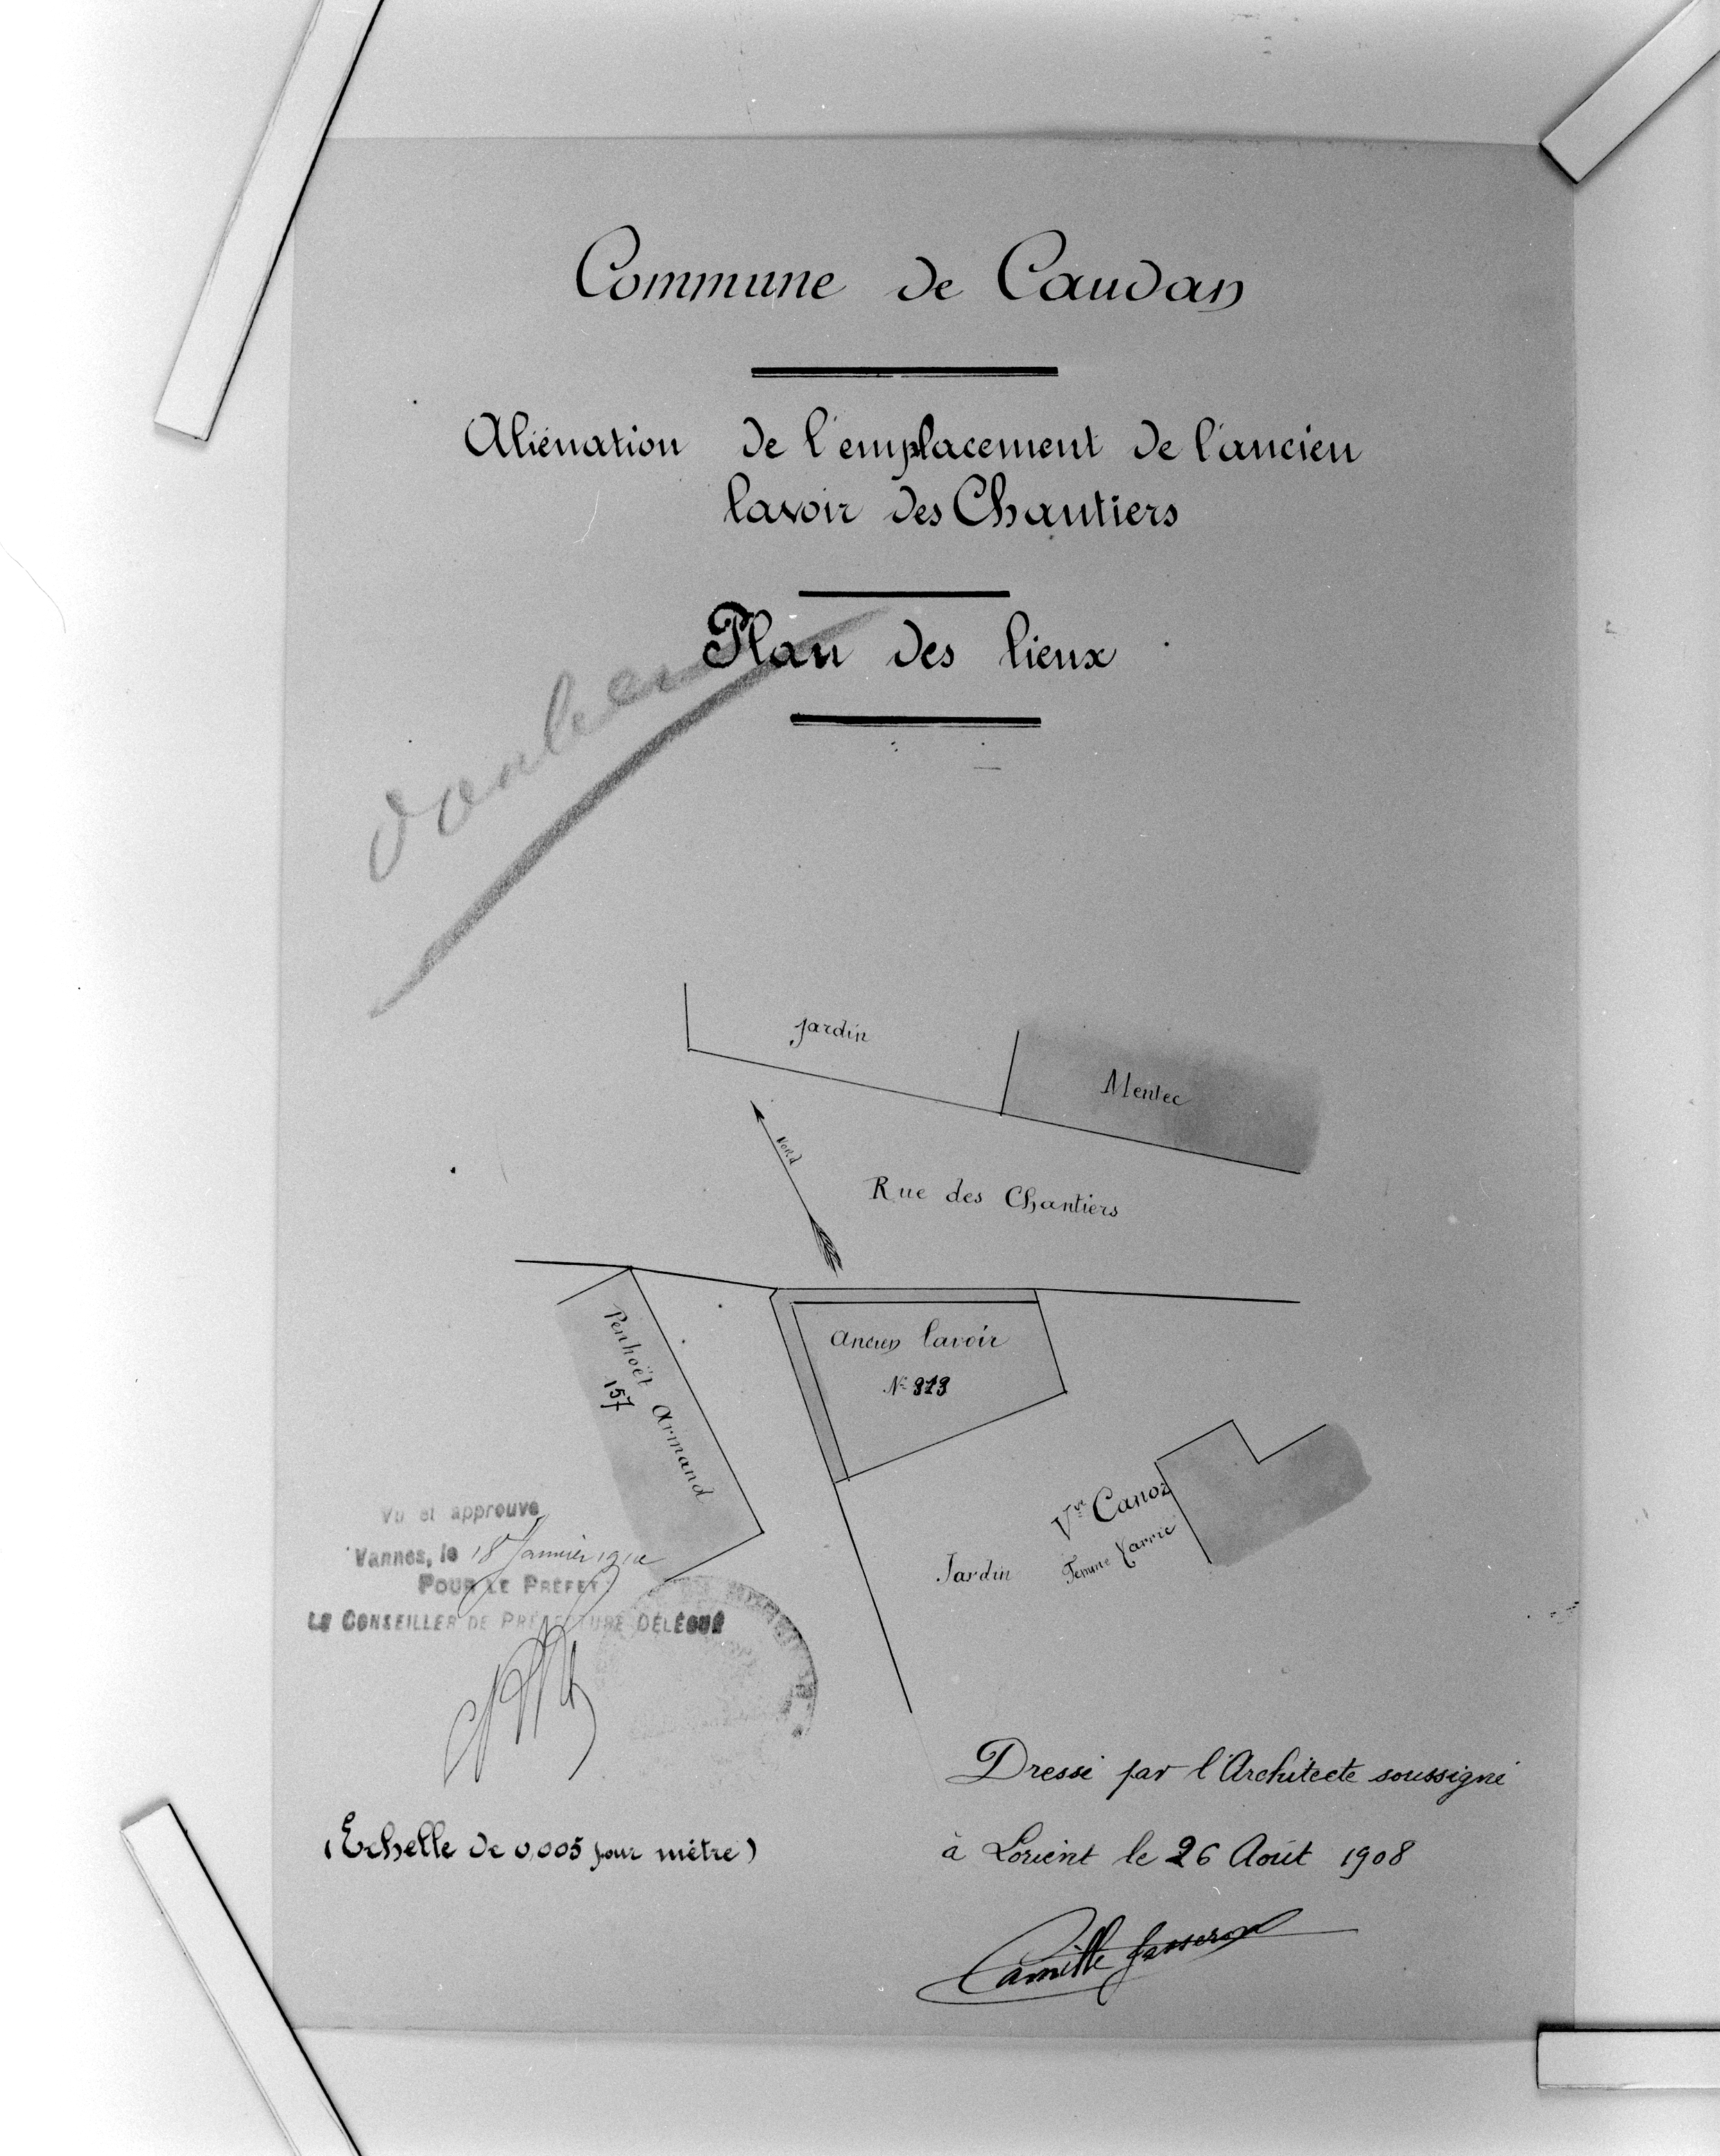 Commune de Caudan
Aliénation de l'emplacement de l'ancien
lavoir des Chantiers
Plan des lieux
jardin
Mentec
Nord
Rue des Chantiers
Penhoët Armand
157
Ancien lavoir
N°
Vve Canoz
Femme
Jardin
Vu et approuvé
Vannes, le 18 Janvier
POUR LE PRÉFET
LE CONSEILLER DE PRÉFECTURE DÉLÉGUÉ
Dressé par l'Architecte soussigné
(Echelle de 0,005 pour mètre)
à Lorient le 26 Août 1908
Camille